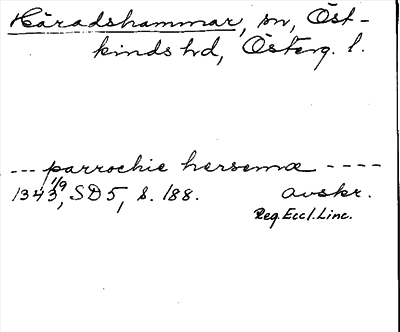 Häradshammar, sn, Öst-
kinds hd, Österg. l.
--- parrochie hersemæ ----
1343 1/9, SD5, s. 188. avskr.
Reg. Eccl. Linc.